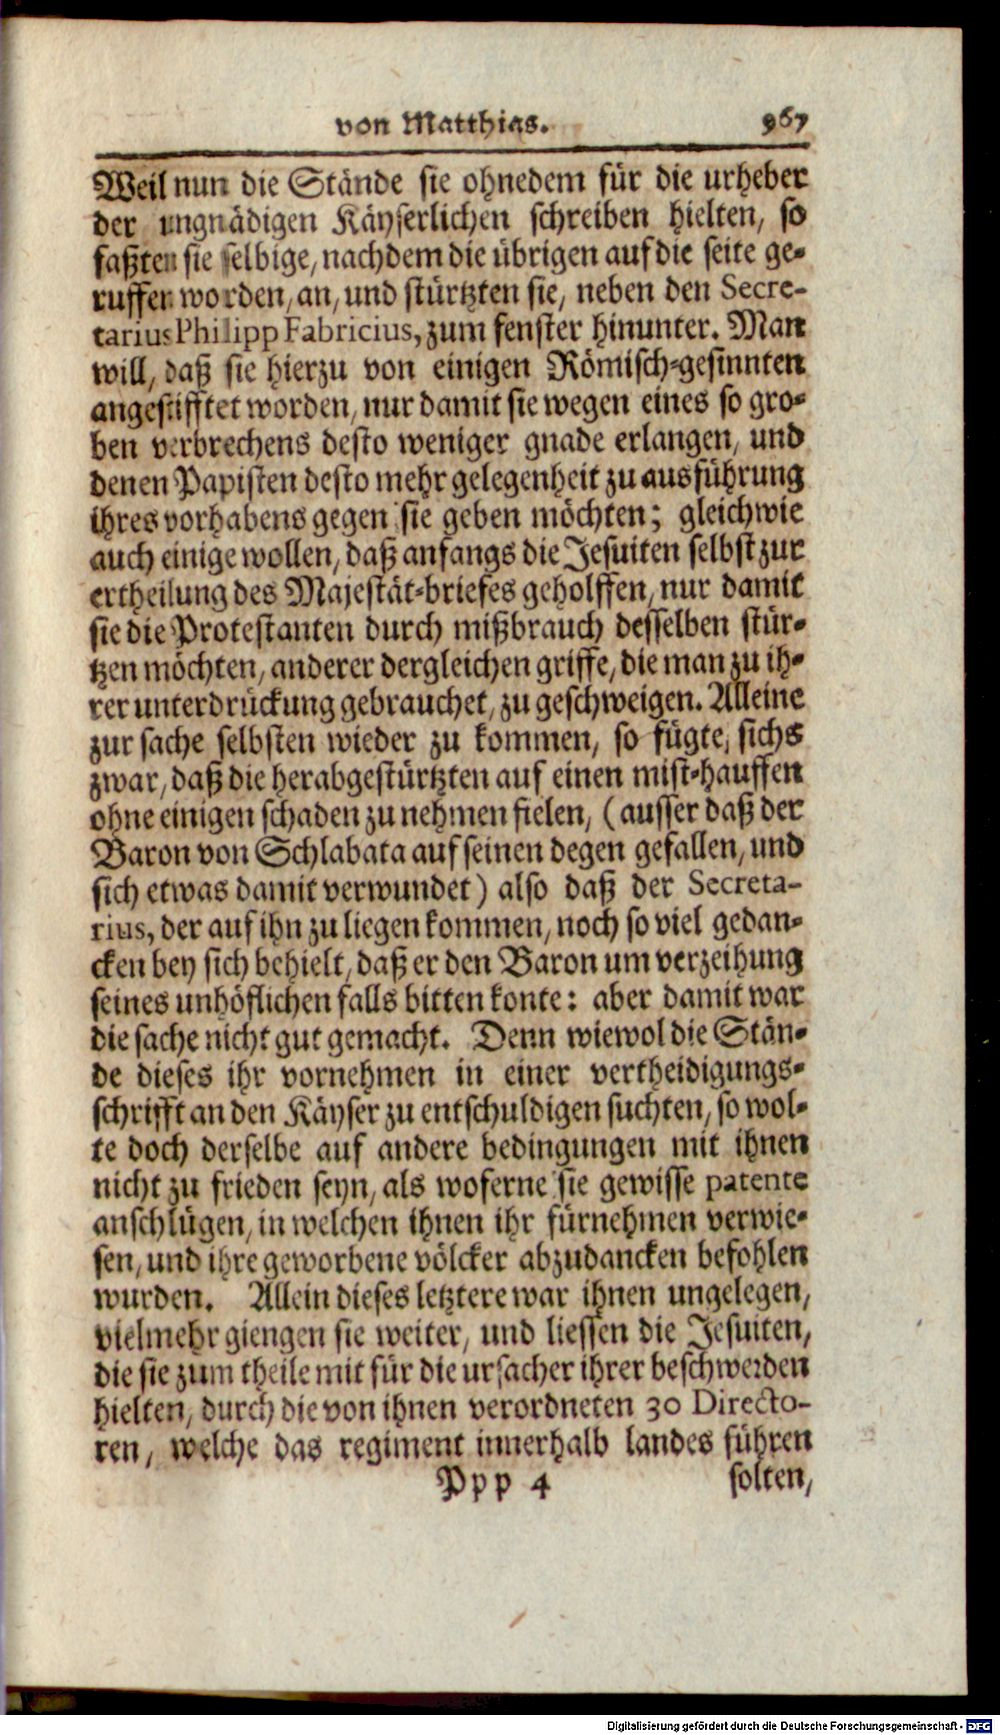 von Matthias. 967
Weil nun die Stände sie ohnedem für die urheber
der ungnädigen Käyserlichen schreiben hielten, so
faßten sie selbige, nachdem die übrigen auf die seite ge-
ruffen worden, an, und stürtzten sie, neben den Secre-
tarius Philipp Fabricius, zum fenster hinunter. Man
will, daß sie hierzu von einigen Römisch-gesinnten
angestifftet worden, nur damit sie wegen eines so gro-
ben verbrechens desto weniger gnade erlangen, und
denen Papisten desto mehr gelegenheit zu ausführung
ihres vorhabens gegen sie geben möchten; gleichwie
auch einige wollen, daß anfangs die Jesuiten selbst zur
ertheilung des Majestät-briefes geholffen, nur damit
sie die Protestanten durch mißbrauch desselben stür-
tzen möchten, anderer dergleichen griffe, die man zu ih-
rer unterdrückung gebrauchet, zu geschweigen. Alleine
zur sache selbsten wieder zu kommen, so fügte, sichs
zwar, daß die herabgestürtzten auf einen mist-hauffen
ohne einigen schaden zu nehmen fielen, (ausser daß der
Baron von Schlabata auf seinen degen gefallen, und
sich etwas damit verwundet) also daß der Secreta-
rius, der auf ihn zu liegen kommen, noch so viel gedan-
cken bey sich behielt, daß er den Baron um verzeihung
seines unhöflichen falls bitten konte: aber damit war
die sache nicht gut gemacht. Denn wiewol die Stän-
de dieses ihr vornehmen in einer vertheidigungs-
schrifft an den Käyser zu entschuldigen suchten, so wol-
te doch derselbe auf andere bedingungen mit ihnen
nicht zu frieden seyn, als woferne sie gewisse patente
anschlügen, in welchen ihnen ihr fürnehmen verwie-
sen, und ihre geworbene völcker abzudancken befohlen
wurden. Allein dieses letztere war ihnen ungelegen,
vielmehr giengen sie weiter, und liessen die Jesuiten,
die sie zum theile mit für die ursacher ihrer beschwerden
hielten, durch die von ihnen verordneten 30 Directo-
ren, welche das regiment innerhalb landes führen
Ppp 4 solten,
Digitalisierung gefördert durch die Deutsche Forschungsgemeinschaft - DFG